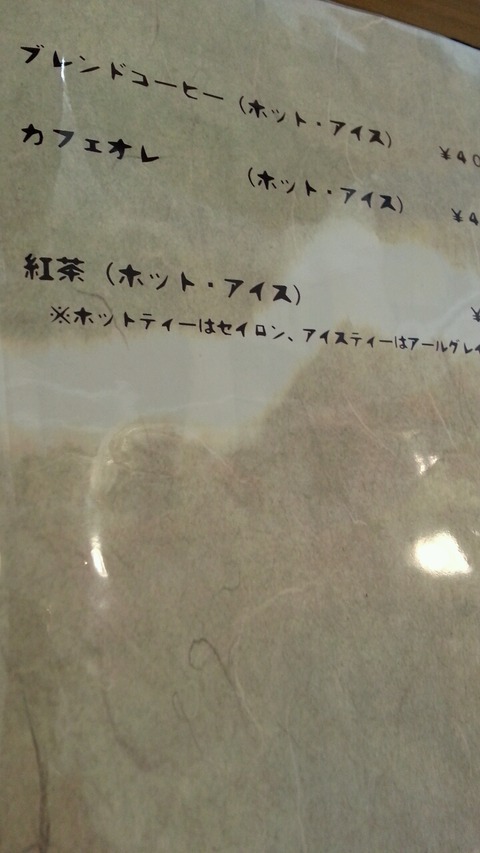 ブレンドコーヒー(ホット・アイス) ¥40
カフェオレ (ホット・アイス) ¥4
紅茶(ホット・アイス) ¥
※ホットティーはセイロン、アイスティーはアールグレイ